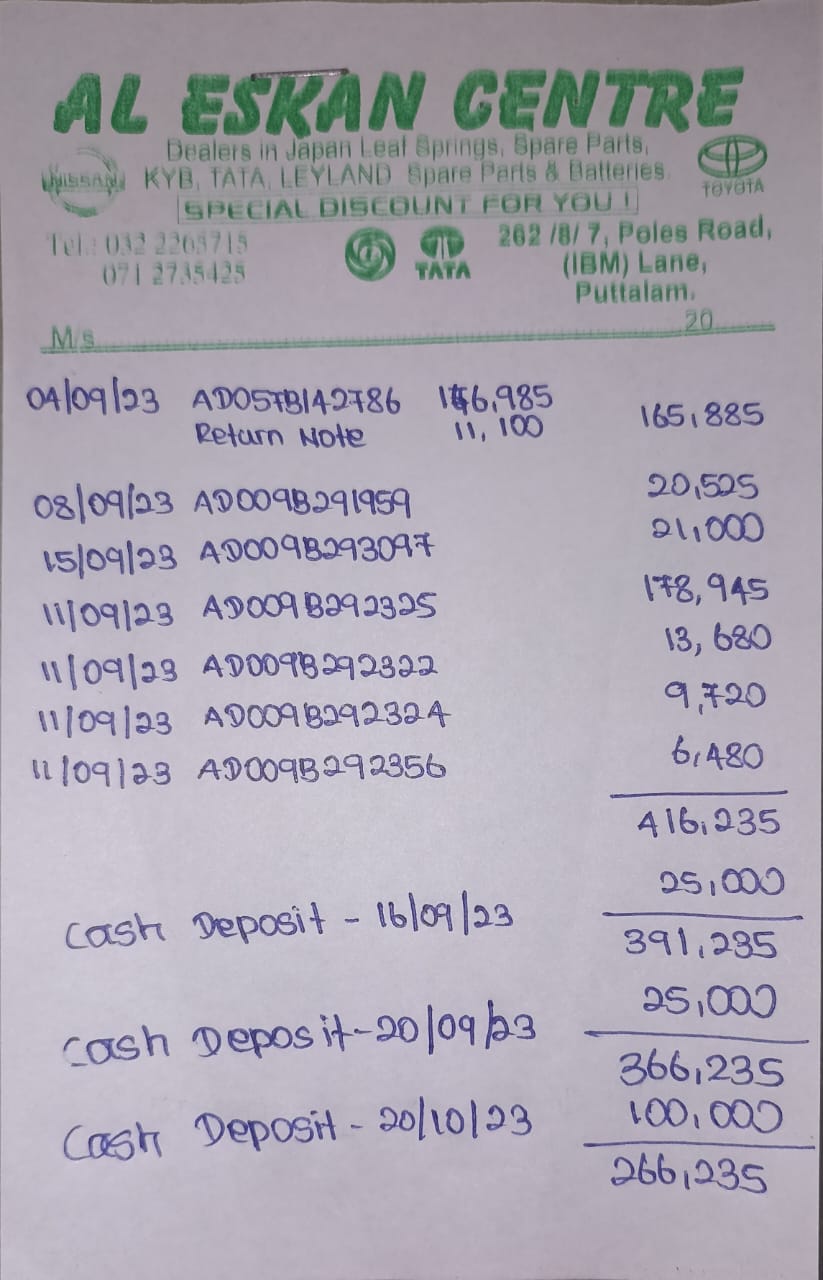 AL ESKAN CENTRE
Dealers in Japan Leaf Springs, Spare Parts,
KYB, TATA, LEYLAND Spare Parts & Batteries.
NISSAN
TOYOTA
SPECIAL DISCOUNT FOR YOU !
Tel.: 032 2265715
071 2735425
TATA
262 /8/ 7, Poles Road,
(IBM) Lane,
Puttalam.
M/s
20
04/09/23 AD057B142786 176,985 165,885
Return Note 11,100
08/09/23 AD009B291959 20,525
15/09/23 AD009B293097 21,000
11/09/23 AD009B292325 178,945
11/09/23 AD009B292322 13,680
11/09/23 AD009B292324 9,720
11/09/23 AD009B292356 6,480
416,235
Cash Deposit - 16/09/23 25,000
391,235
Cash Deposit - 20/09/23 25,000
366,235
Cash Deposit - 20/10/23 100,000
266,235